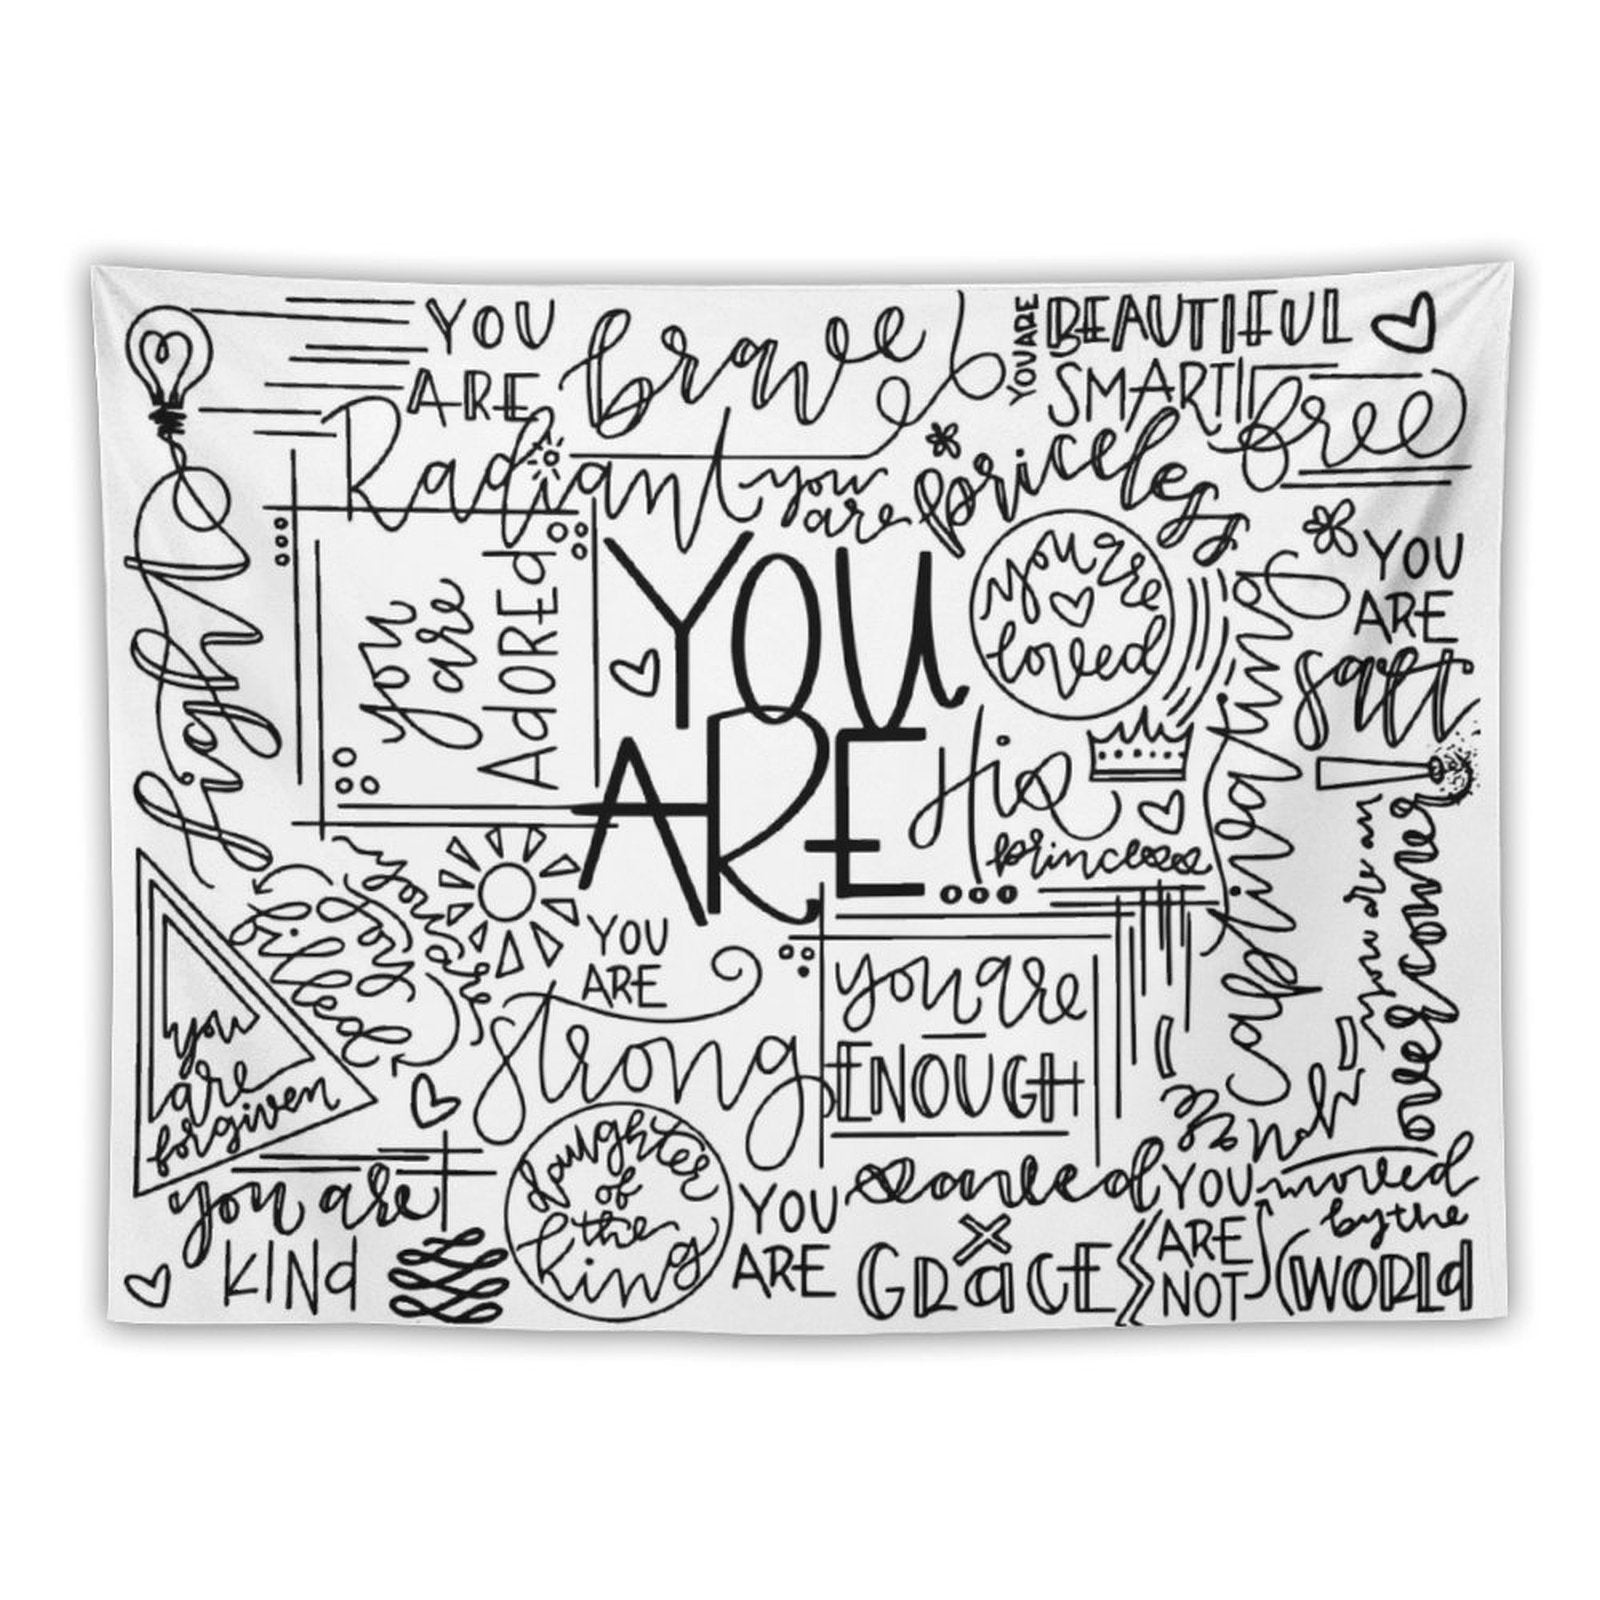 YOU
ARE
brave
YOU ARE
BEAUTIFUL
SMART
free
Radiant
you
are
priceless
light
you
are
AdOREd
YOU
ARE...
you are
loved
His
princess
captivating
YOU
ARE
salt
you are an
overcomer
you are
joy
filled
you
are
forgiven
YOU
ARE
strong
you are
ENOUGH
you are
KINd
daughter
of
the
king
YOU
ARE
saved
x
GRaCE
YOU
ARE
NOT
moved
by the
WORLd